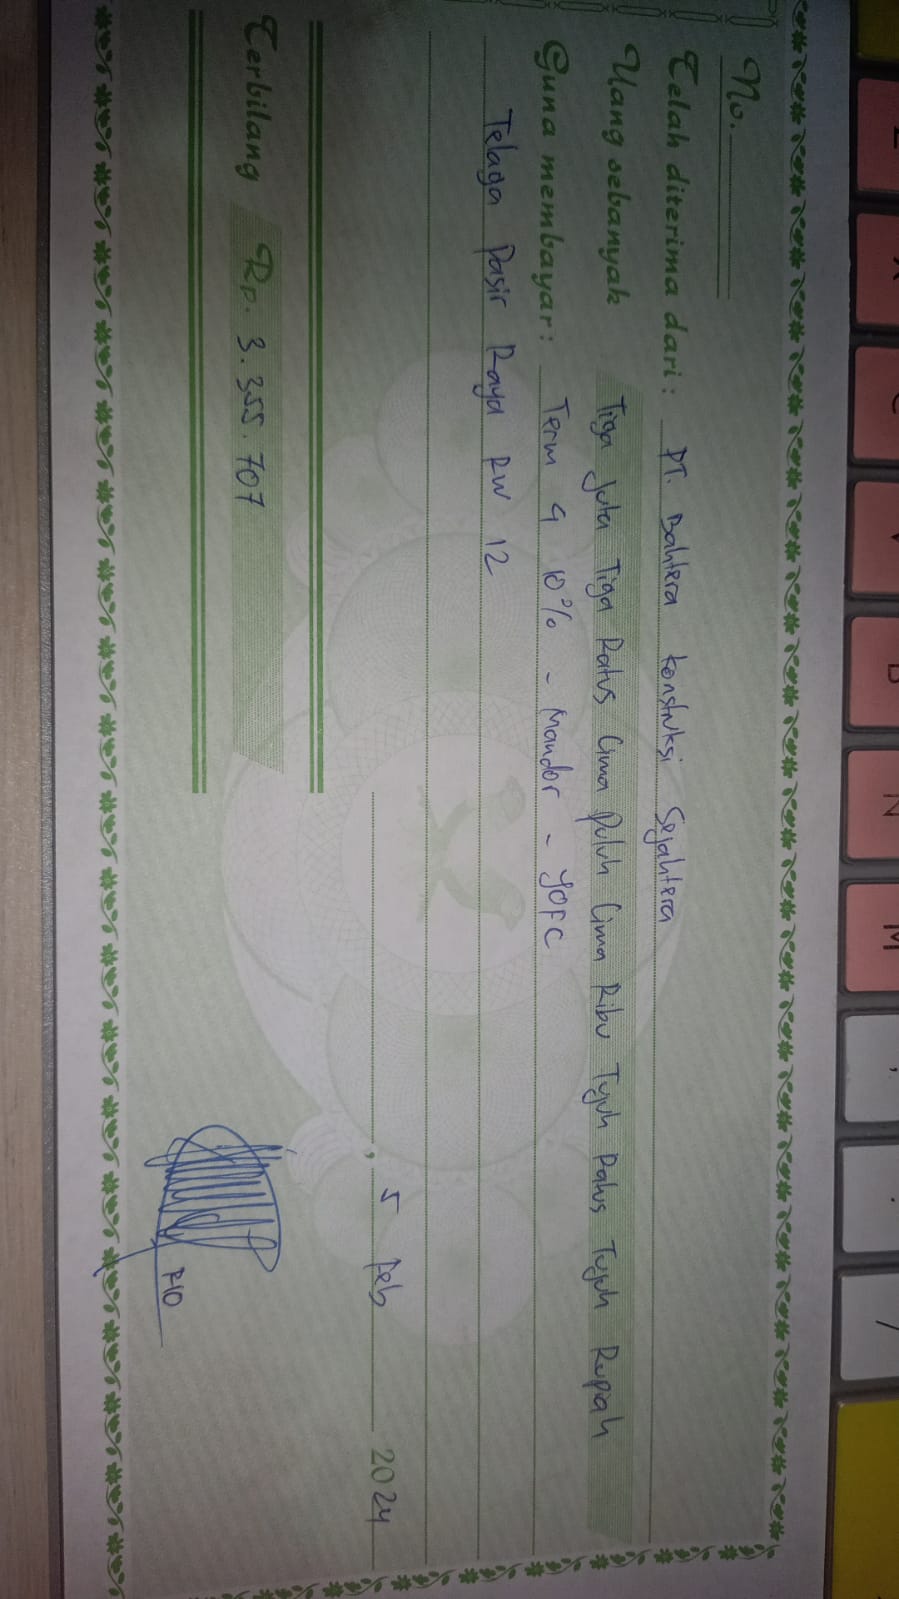 No.
Telah diterima dari : PT. Bahtera Konstruksi Sejahtera
Uang sebanyak Tiga Juta Tiga Ratus Lima Puluh Lima Ribu Tujuh Ratus Tujuh Rupiah
Guna membayar : Term 4 10% - Mandor - YOFC
Telaga Pasir Raya RW 12
, 5 Feb 2024
Terbilang Rp. 3.355.707
RIO
Z
X
C
V
B
N
M
,
.
/